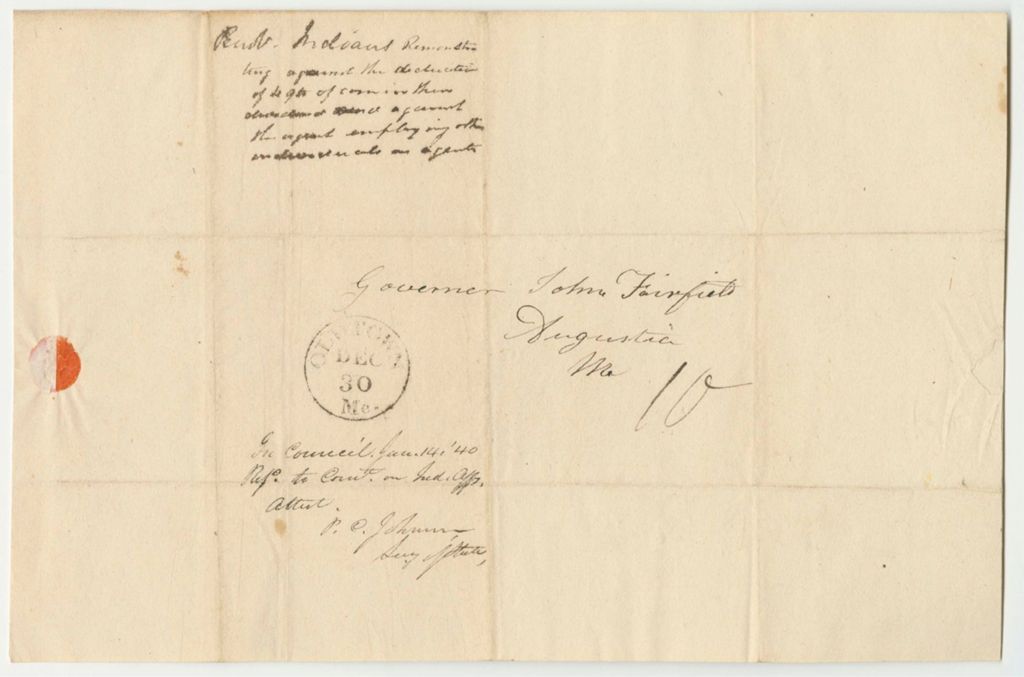 Penob. Indians Remonstra
ting against the deduction
of 49$ of corn in their
dividend and against
the agent employing other
individuals as agents
Governer John Fairfield
Augustia
Me 10
OLDTOWN
DEC
30
Me.
In Council, Jan. 14, '40
Refd. to Comte. on Ind. Affs.
Attest.
P. C. Johnson
Secy of State,